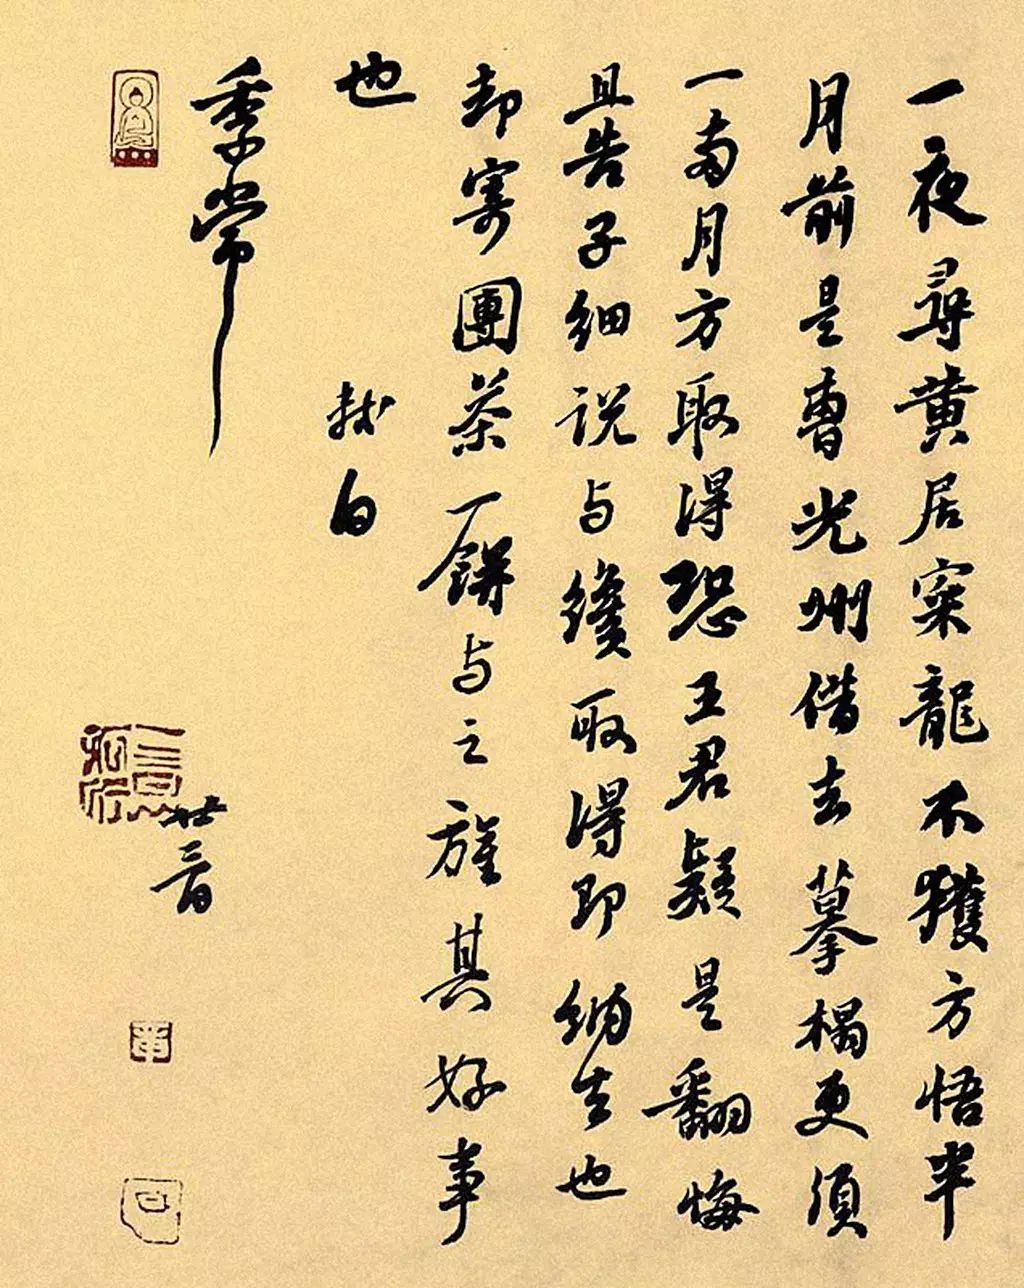 一夜尋黄居寀龍不獲方悟半
月前是曹光州借去摹榻更須
一兩月方取得恐王君疑是翻悔
且告子細説与纔取得即納去也
却寄團茶一餅与之旌其好事
也
軾白
季常
廿三日